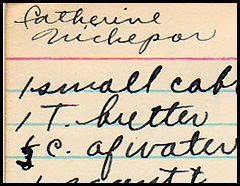 Catherine
Nichepor
1 small cab
1 T. butter
C. of water